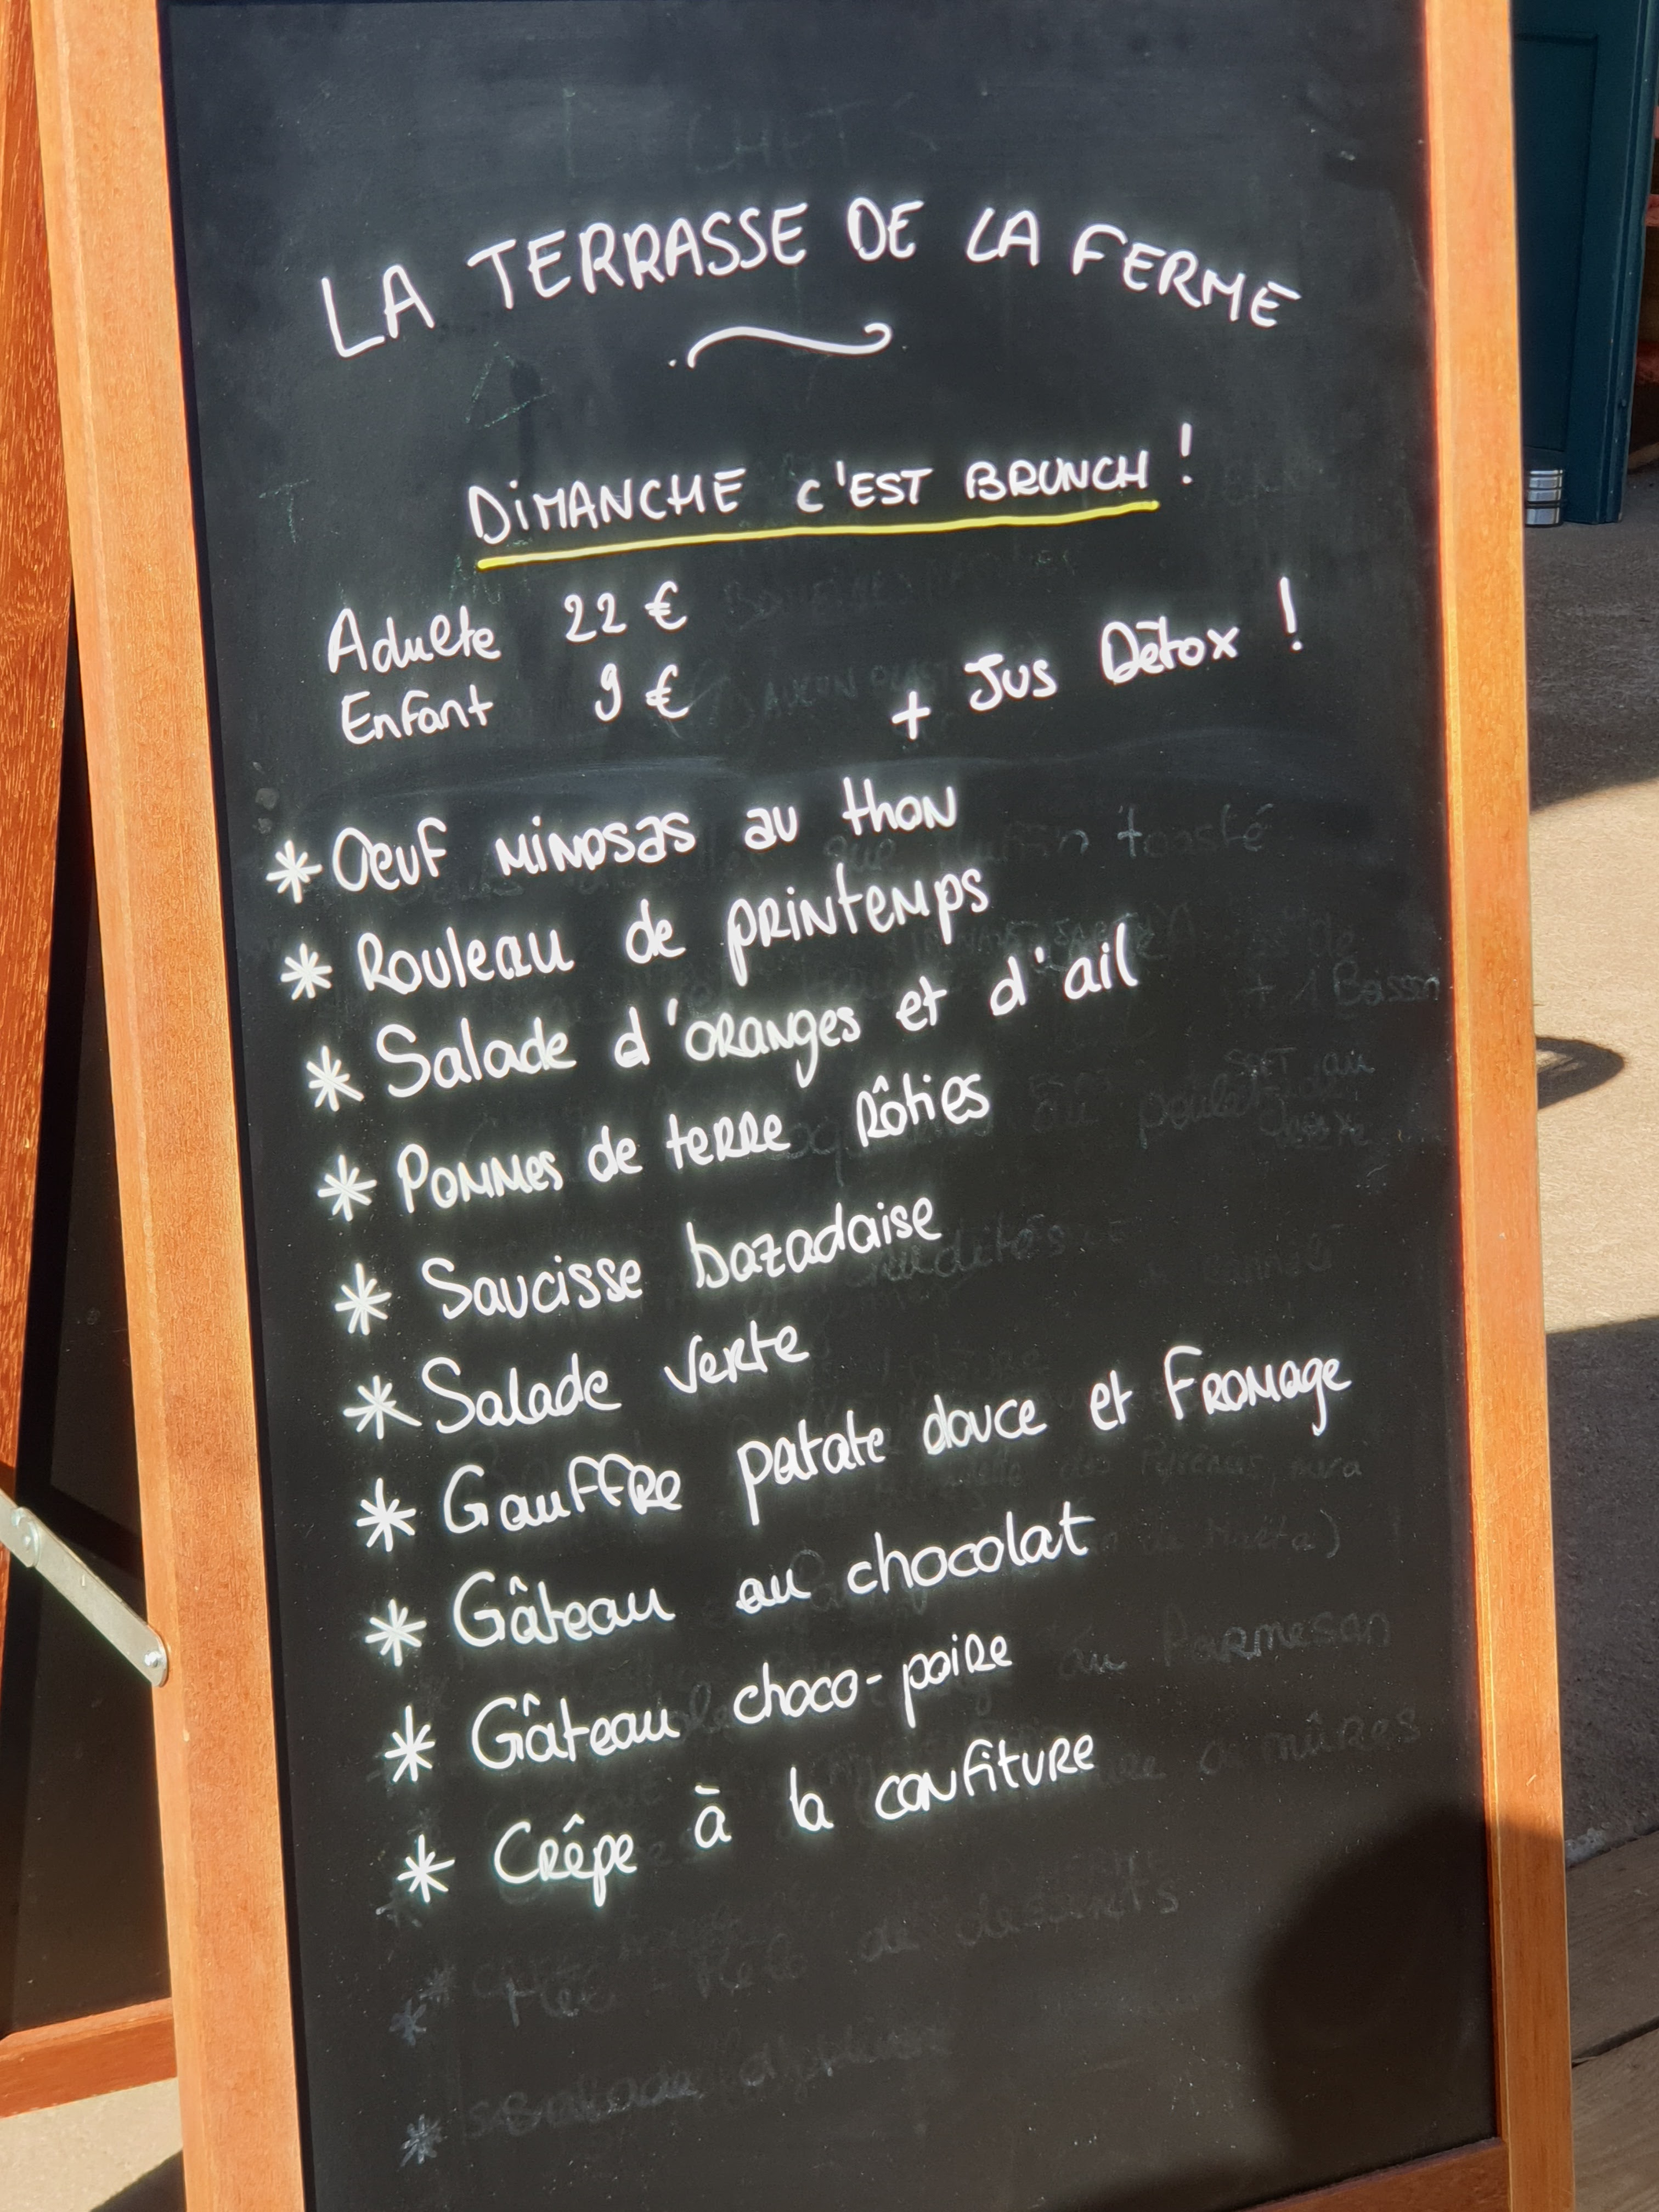 LA TERRASSE DE LA FERME
DIMANCHE C'EST BRUNCH !
Adulte 22 €
Enfant 9 €
+ Jus Détox !
* Oeuf mimosas au thon
* Rouleau de printemps
* Salade d'oranges et d'ail
* Pommes de terre rôties
* Saucisse bazadaise
* Salade verte
* Gauffre patate douce et Fromage
* Gâteau au chocolat
* Gâteau choco-poire
* Crêpe à la confiture